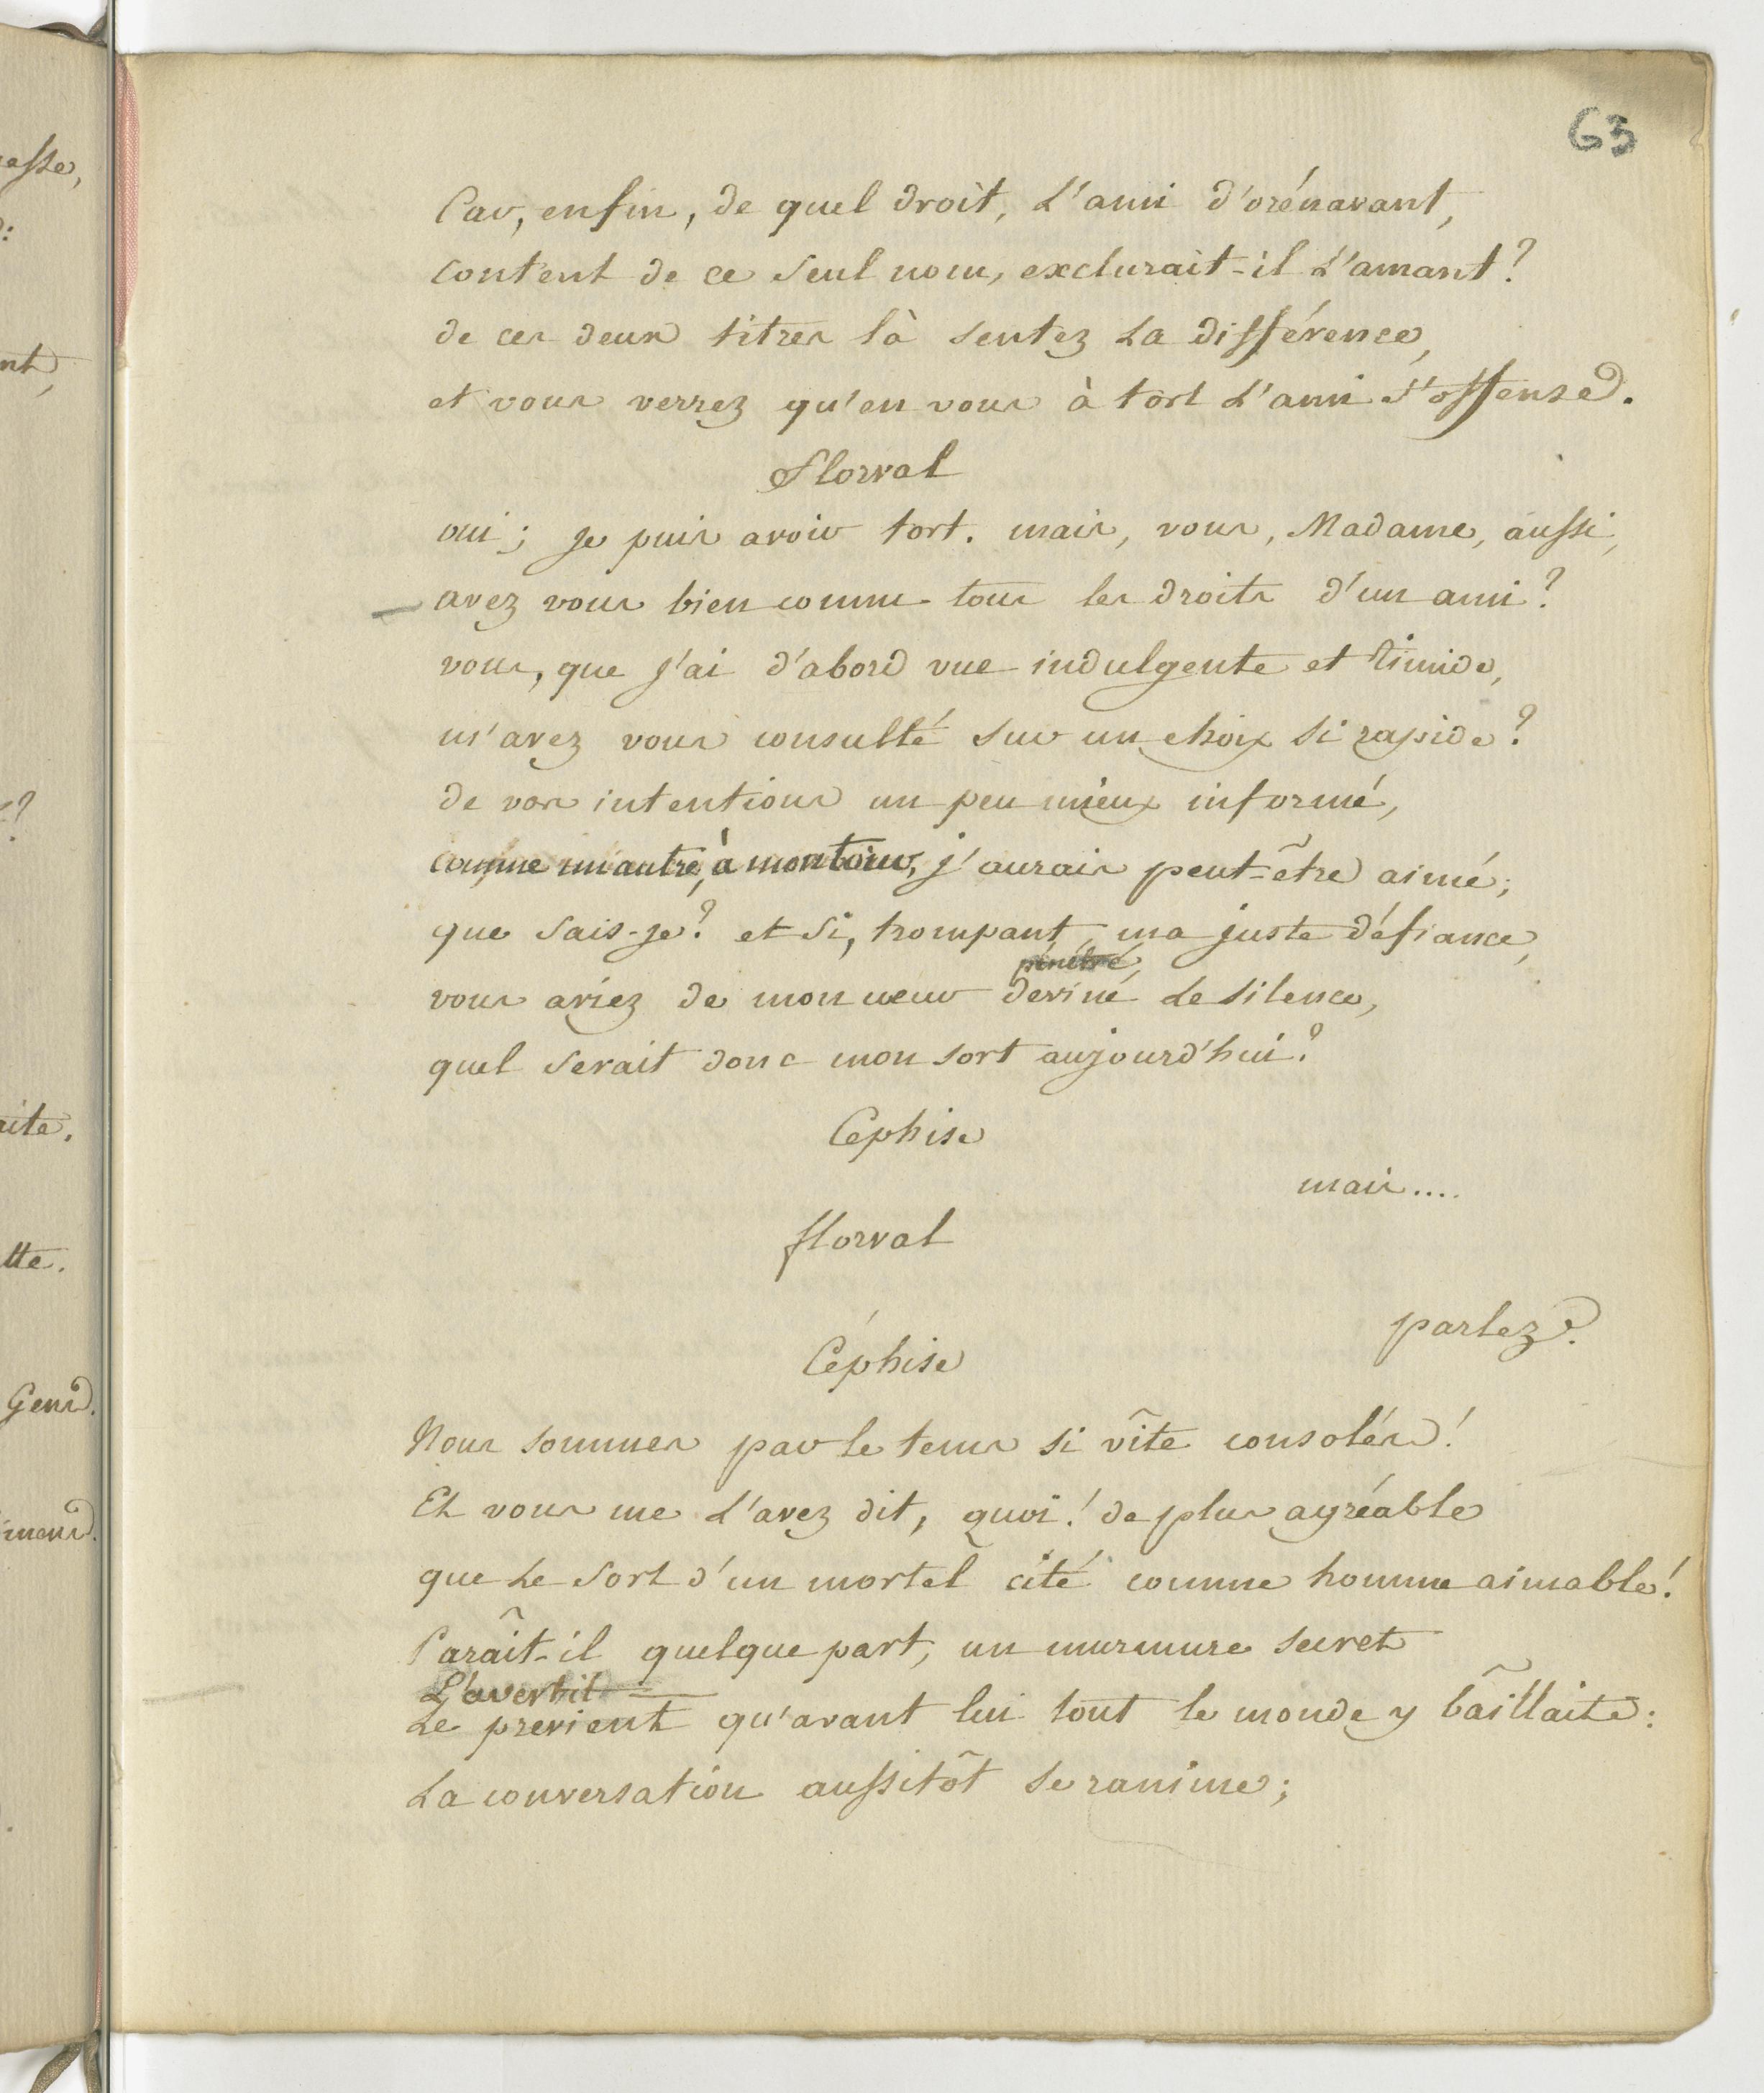 63
Car, enfin, de quel droit, L'ami d'orénavant,
content de ce seul nom, exclurait-il L'amant?
de ces deux titres là sentez La différence,
et vous verrez qu'en vous à tort L'ami s'offense.
florval
oui; je puis avoir tort. mais, vous, Madame, aussi,
avez vous bien connu tous les droits d'un ami?
vous, que j'ai d'abord vue indulgente et timide,
m'avez vous consulté sur un choix si rapide?
de vos intentions un peu mieux informé,
comme un autre, à mon tour, j'aurais peut-être aimé;
que sais-je? et si, trompant ma juste défiance,
pénétré,
vous aviez de mon cœur deviné Le silence,
quel serait donc mon sort aujourd'hui?
Cephise
mais....
florval
parlez.
Céphise
Nous sommes par le tems si vîte consolés!
Et vous me L'avez dit, quoi! de plus agréable
que Le sort d'un mortel cité comme homme aimable!
Parâit-il quelque part, un murmure secret
L'avertit
Le prévient qu'avant lui tout le monde y bâillait:
La conversation aussitôt se ranime;
esse,
nt,
?
aite.
tte.
Gens.
mens.